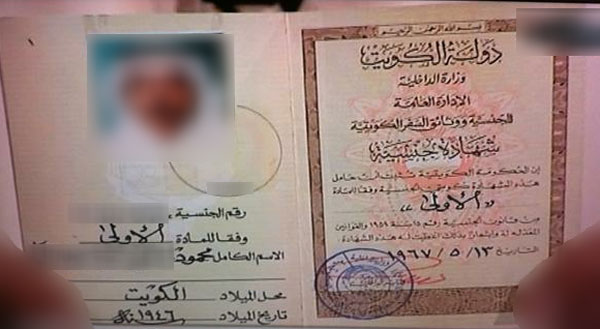 بسم الله الرحمن الرحيم
دولة الكويت
وزارة الداخلية
الإدارة العامة
للجنسية ووثائق السفر الكويتية
شهادة جنسية
إن الحكومة الكويتية تشهد بأن حامل
هذه الشهادة كويتي الجنسية وفقا للمادة
" الأولى "
من قانون الجنسية رقم ١٥ لسنة ١٩٥٩ والقوانين
المعدلة له وإيضاحا بذلك أعطيت له هذه الشهادة.
التاريخ ١٣ / ٥ / ١٩٦٧
١
رقم الجنسية :
وفقا للمادة الأولى
الاسم الكامل محمود
محل الميلاد الكويت
تاريخ الميلاد ١٩٤٦